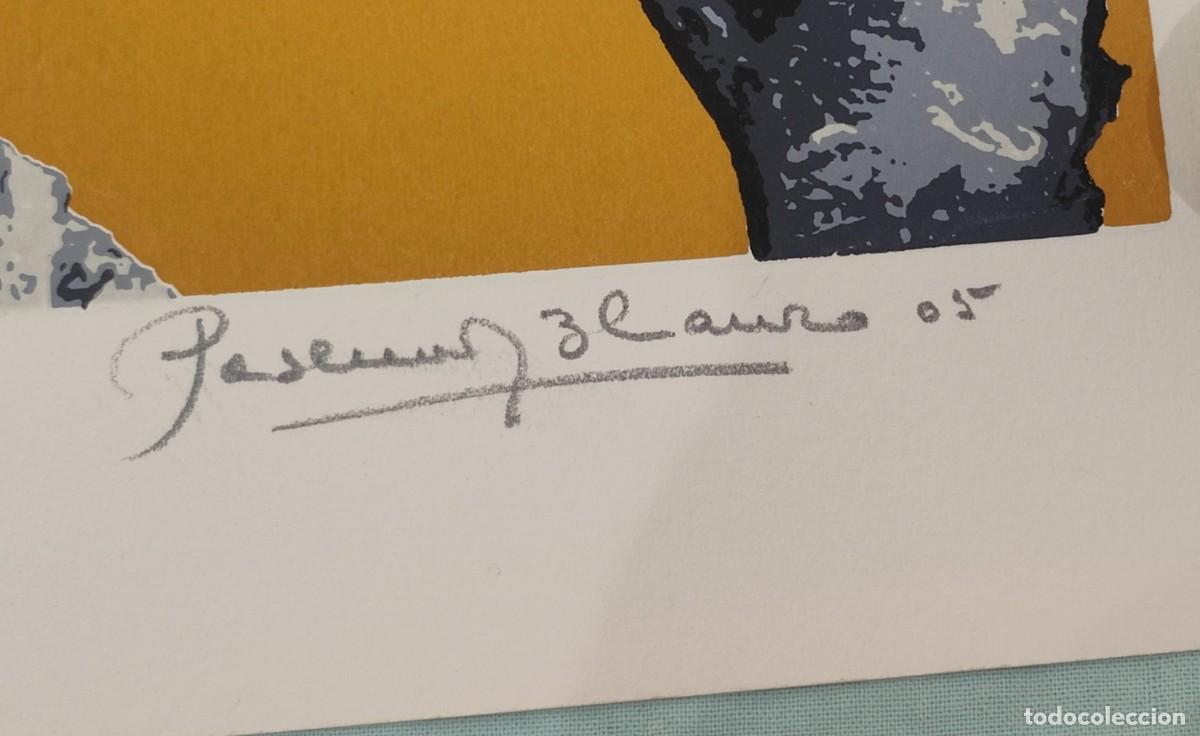 Pascual Blanco 05
todocoleccion